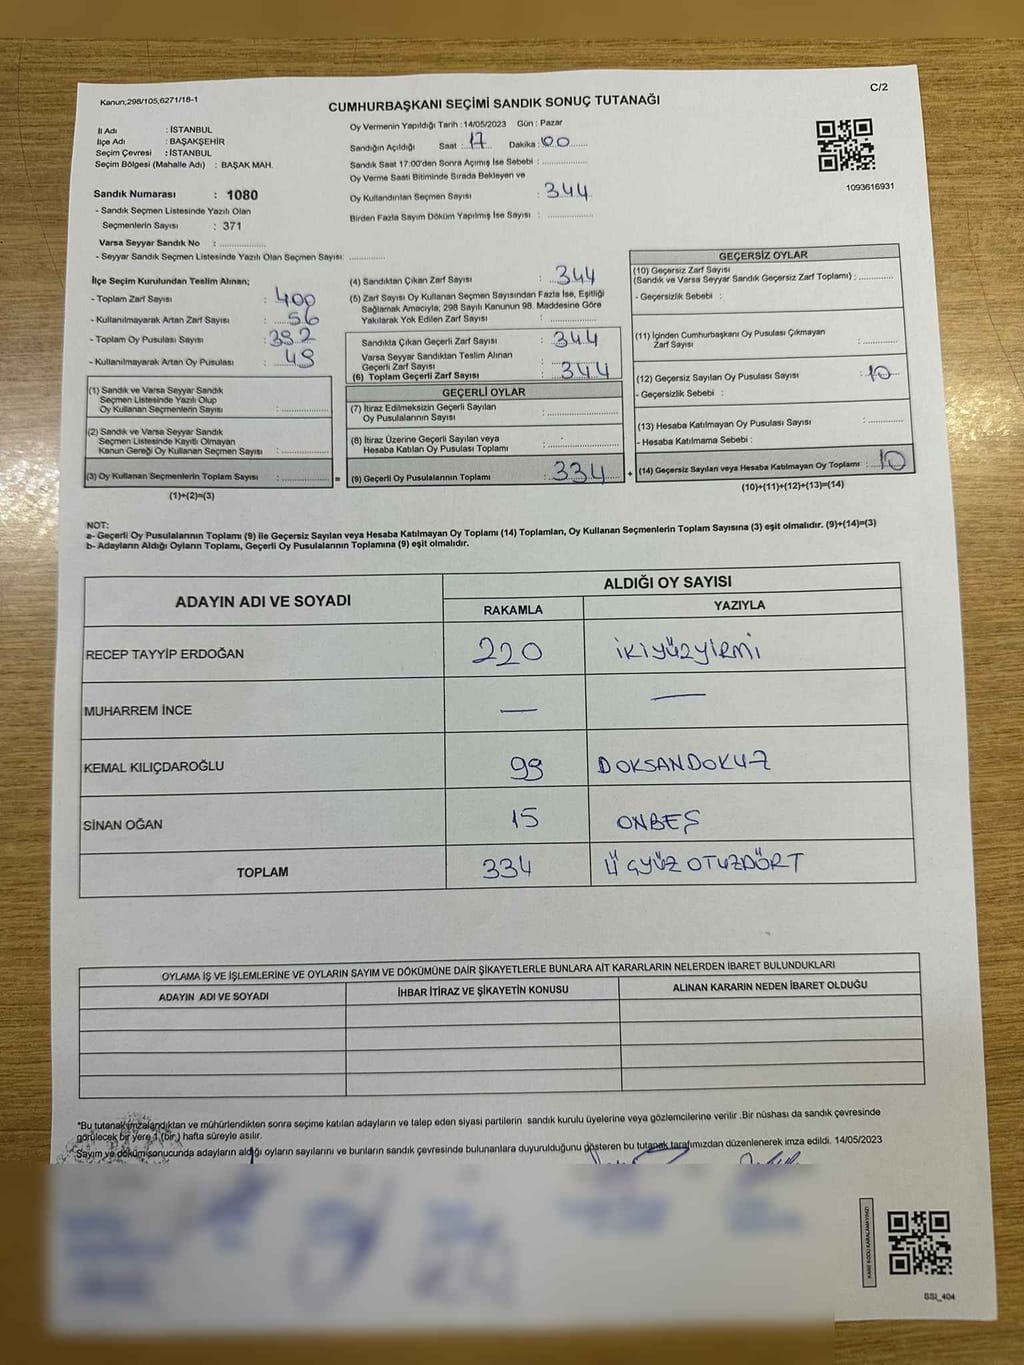 Kanun;298/105;6271/18-1
C/2
CUMHURBAŞKANI SEÇİMİ SANDIK SONUÇ TUTANAĞI
İl Adı : İSTANBUL
İlçe Adı : BAŞAKŞEHİR
Seçim Çevresi : İSTANBUL
Seçim Bölgesi (Mahalle Adı) : BAŞAK MAH.
Oy Vermenin Yapıldığı Tarih : 14/05/2023 Gün : Pazar
Sandığın Açıldığı Saat : 17 Dakika : 00
Sandık Saat 17.00'den Sonra Açımış İse Sebebi :
Oy Verme Saati Bitiminde Sırada Bekleyen ve
Oy Kullandırılan Seçmen Sayısı : 344
Birden Fazla Sayım Döküm Yapılmış İse Sayısı :
1093616931
Sandık Numarası : 1080
- Sandık Seçmen Listesinde Yazılı Olan
Seçmenlerin Sayısı : 371
Varsa Seyyar Sandık No :
- Seyyar Sandık Seçmen Listesinde Yazılı Olan Seçmen Sayısı:
İlçe Seçim Kurulundan Teslim Alınan;
- Toplam Zarf Sayısı : 400
- Kullanılmayarak Artan Zarf Sayısı : 56
- Toplam Oy Pusulası Sayısı : 392
- Kullanılmayarak Artan Oy Pusulası : 48
(1) Sandık ve Varsa Seyyar Sandık
Seçmen Listesinde Yazılı Olup
Oy Kullanan Seçmenlerin Sayısı :
(2) Sandık ve Varsa Seyyar Sandık
Seçmen Listesinde Kayıtlı Olmayan
Kanun Gereği Oy Kullanan Seçmen Sayısı :
(3) Oy Kullanan Seçmenlerin Toplam Sayısı :
(1)+(2)=(3)
(4) Sandıktan Çıkan Zarf Sayısı : 344
(5) Zarf Sayısı Oy Kullanan Seçmen Sayısından Fazla İse, Eşitliği
Sağlamak Amacıyla; 298 Sayılı Kanunun 98. Maddesine Göre
Yakılarak Yok Edilen Zarf Sayısı :
Sandıkta Çıkan Geçerli Zarf Sayısı : 344
Varsa Seyyar Sandıktan Teslim Alınan
Geçerli Zarf Sayısı :
(6) Toplam Geçerli Zarf Sayısı : 344
GEÇERLİ OYLAR
(7) İtiraz Edilmeksizin Geçerli Sayılan
Oy Pusulalarının Sayısı :
(8) İtiraz Üzerine Geçerli Sayılan veya
Hesaba Katılan Oy Pusulası Toplamı :
= (9) Geçerli Oy Pusulalarının Toplamı : 334
GEÇERSİZ OYLAR
(10) Geçersiz Zarf Sayısı
(Sandık ve Varsa Seyyar Sandık Geçersiz Zarf Toplamı) :
- Geçersizlik Sebebi :
(11) İçinden Cumhurbaşkanı Oy Pusulası Çıkmayan
Zarf Sayısı :
(12) Geçersiz Sayılan Oy Pusulası Sayısı : 10
- Geçersizlik Sebebi :
(13) Hesaba Katılmayan Oy Pusulası Sayısı :
- Hesaba Katılmama Sebebi :
+ (14) Geçersiz Sayılan veya Hesaba Katılmayan Oy Toplamı : 10
(10)+(11)+(12)+(13)=(14)
NOT:
a- Geçerli Oy Pusulalarının Toplamı (9) ile Geçersiz Sayılan veya Hesaba Katılmayan Oy Toplamı (14) Toplamları, Oy Kullanan Seçmenlerin Toplam Sayısına (3) eşit olmalıdır. (9)+(14)=(3)
b- Adayların Aldığı Oyların Toplamı, Geçerli Oy Pusulalarının Toplamına (9) eşit olmalıdır.
ADAYIN ADI VE SOYADI
ALDIĞI OY SAYISI
RAKAMLA YAZIYLA
RECEP TAYYİP ERDOĞAN 220 ikiyüzyirmi
MUHARREM İNCE — —
KEMAL KILIÇDAROĞLU 99 DOKSANDOKUZ
SİNAN OĞAN 15 ONBEŞ
TOPLAM 334 ÜÇYÜZ OTUZDÖRT
OYLAMA İŞ VE İŞLEMLERİNE VE OYLARIN SAYIM VE DÖKÜMÜNE DAİR ŞİKAYETLERLE BUNLARA AİT KARARLARIN NELERDEN İBARET BULUNDUKLARI
ADAYIN ADI VE SOYADI İHBAR İTİRAZ VE ŞİKAYETİN KONUSU ALINAN KARARIN NEDEN İBARET OLDUĞU
*Bu tutanak imzalandıktan ve mühürlendikten sonra seçime katılan adayların ve talep eden siyasi partilerin sandık kurulu üyelerine veya gözlemcilerine verilir .Bir nüshası da sandık çevresinde
görülecek bir yere 1 (bir) hafta süreyle asılır.
*Sayım ve döküm sonucunda adayların aldığı oyların sayılarını ve bunların sandık çevresinde bulunanlara duyurulduğunu gösteren bu tutanak tarafımızdan düzenlenerek imza edildi. 14/05/2023
KARE KODU KARALAMAYINIZ!
SSI_404